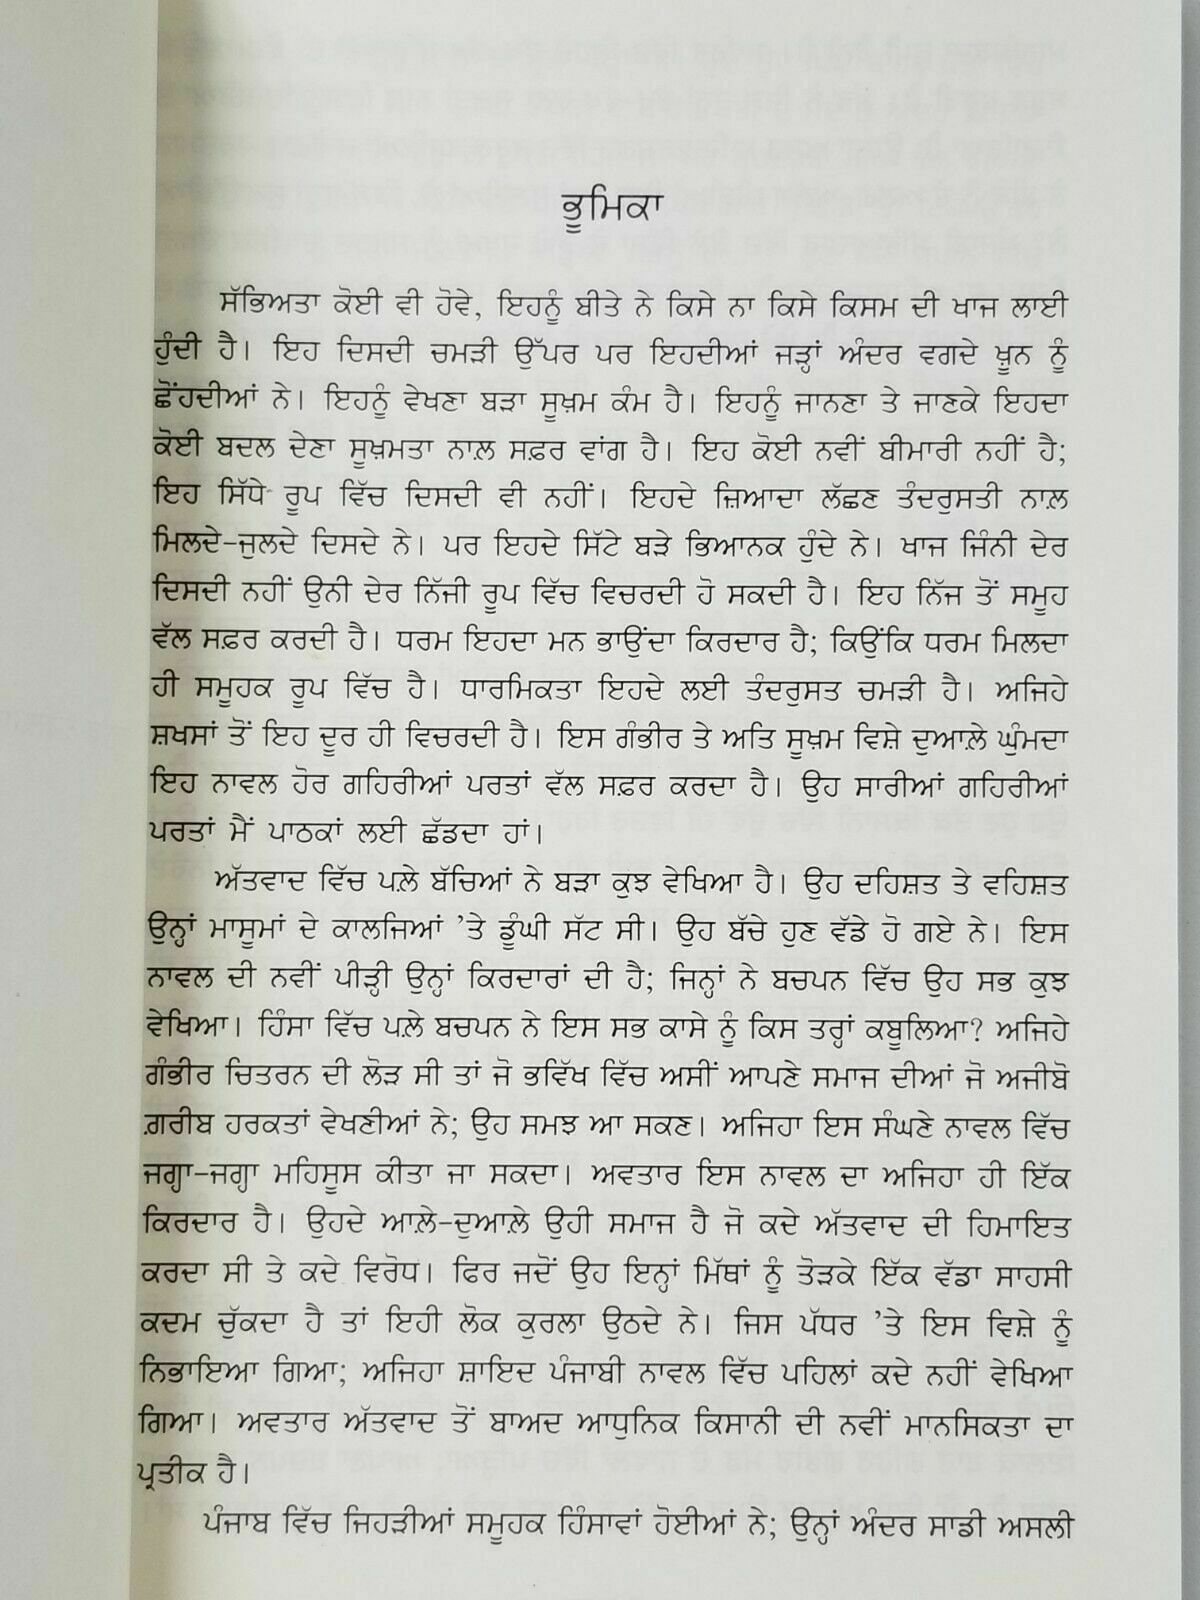 ਭੂਮਿਕਾ
ਸੱਭਿਅਤਾ ਕੋਈ ਵੀ ਹੋਵੇ, ਇਹਨੂੰ ਬੀਤੇ ਨੇ ਕਿਸੇ ਨਾ ਕਿਸੇ ਕਿਸਮ ਦੀ ਖਾਜ ਲਾਈ
ਹੁੰਦੀ ਹੈ। ਇਹ ਦਿਸਦੀ ਚਮੜੀ ਉੱਪਰ ਪਰ ਇਹਦੀਆਂ ਜੜ੍ਹਾਂ ਅੰਦਰ ਵਗਦੇ ਖ਼ੂਨ ਨੂੰ
ਛੋਂਹਦੀਆਂ ਨੇ। ਇਹਨੂੰ ਵੇਖਣਾ ਬੜਾ ਸੂਖ਼ਮ ਕੰਮ ਹੈ। ਇਹਨੂੰ ਜਾਨਣਾ ਤੇ ਜਾਣਕੇ ਇਹਦਾ
ਕੋਈ ਬਦਲ ਦੇਣਾ ਸੂਖ਼ਮਤਾ ਨਾਲ਼ ਸਫ਼ਰ ਵਾਂਗ ਹੈ। ਇਹ ਕੋਈ ਨਵੀਂ ਬੀਮਾਰੀ ਨਹੀਂ ਹੈ;
ਇਹ ਸਿੱਧੇ ਰੂਪ ਵਿੱਚ ਦਿਸਦੀ ਵੀ ਨਹੀਂ। ਇਹਦੇ ਜ਼ਿਆਦਾ ਲੱਛਣ ਤੰਦਰੁਸਤੀ ਨਾਲ਼
ਮਿਲਦੇ-ਜੁਲਦੇ ਦਿਸਦੇ ਨੇ। ਪਰ ਇਹਦੇ ਸਿੱਟੇ ਬੜੇ ਭਿਆਨਕ ਹੁੰਦੇ ਨੇ। ਖਾਜ ਜਿੰਨੀ ਦੇਰ
ਦਿਸਦੀ ਨਹੀਂ ਉਨੀ ਦੇਰ ਨਿੱਜੀ ਰੂਪ ਵਿੱਚ ਵਿਚਰਦੀ ਹੋ ਸਕਦੀ ਹੈ। ਇਹ ਨਿੱਜ ਤੋਂ ਸਮੂਹ
ਵੱਲ ਸਫ਼ਰ ਕਰਦੀ ਹੈ। ਧਰਮ ਇਹਦਾ ਮਨ ਭਾਉਂਦਾ ਕਿਰਦਾਰ ਹੈ; ਕਿਉਂਕਿ ਧਰਮ ਮਿਲਦਾ
ਹੀ ਸਮੂਹਕ ਰੂਪ ਵਿੱਚ ਹੈ। ਧਾਰਮਿਕਤਾ ਇਹਦੇ ਲਈ ਤੰਦਰੁਸਤ ਚਮੜੀ ਹੈ। ਅਜਿਹੇ
ਸ਼ਖਸਾਂ ਤੋਂ ਇਹ ਦੂਰ ਹੀ ਵਿਚਰਦੀ ਹੈ। ਇਸ ਗੰਭੀਰ ਤੇ ਅਤਿ ਸੂਖ਼ਮ ਵਿਸ਼ੇ ਦੁਆਲ਼ੇ ਘੁੰਮਦਾ
ਇਹ ਨਾਵਲ ਹੋਰ ਗਹਿਰੀਆਂ ਪਰਤਾਂ ਵੱਲ ਸਫ਼ਰ ਕਰਦਾ ਹੈ। ਉਹ ਸਾਰੀਆਂ ਗਹਿਰੀਆਂ
ਪਰਤਾਂ ਮੈਂ ਪਾਠਕਾਂ ਲਈ ਛੱਡਦਾ ਹਾਂ।
ਅੱਤਵਾਦ ਵਿੱਚ ਪਲ਼ੇ ਬੱਚਿਆਂ ਨੇ ਬੜਾ ਕੁਝ ਵੇਖਿਆ ਹੈ। ਉਹ ਦਹਿਸ਼ਤ ਤੇ ਵਹਿਸ਼ਤ
ਉਨ੍ਹਾਂ ਮਾਸੂਮਾਂ ਦੇ ਕਾਲਜਿਆਂ ’ਤੇ ਡੂੰਘੀ ਸੱਟ ਸੀ। ਉਹ ਬੱਚੇ ਹੁਣ ਵੱਡੇ ਹੋ ਗਏ ਨੇ। ਇਸ
ਨਾਵਲ ਦੀ ਨਵੀਂ ਪੀੜ੍ਹੀ ਉਨ੍ਹਾਂ ਕਿਰਦਾਰਾਂ ਦੀ ਹੈ; ਜਿਨ੍ਹਾਂ ਨੇ ਬਚਪਨ ਵਿੱਚ ਉਹ ਸਭ ਕੁਝ
ਵੇਖਿਆ। ਹਿੰਸਾ ਵਿੱਚ ਪਲ਼ੇ ਬਚਪਨ ਨੇ ਇਸ ਸਭ ਕਾਸੇ ਨੂੰ ਕਿਸ ਤਰ੍ਹਾਂ ਕਬੂਲਿਆ? ਅਜਿਹੇ
ਗੰਭੀਰ ਚਿਤਰਨ ਦੀ ਲੋੜ ਸੀ ਤਾਂ ਜੋ ਭਵਿੱਖ ਵਿੱਚ ਅਸੀਂ ਆਪਣੇ ਸਮਾਜ ਦੀਆਂ ਜੋ ਅਜੀਬੋ
ਗ਼ਰੀਬ ਹਰਕਤਾਂ ਵੇਖਣੀਆਂ ਨੇ; ਉਹ ਸਮਝ ਆ ਸਕਣ। ਅਜਿਹਾ ਇਸ ਸੰਘਣੇ ਨਾਵਲ ਵਿੱਚ
ਜਗ੍ਹਾ-ਜਗ੍ਹਾ ਮਹਿਸੂਸ ਕੀਤਾ ਜਾ ਸਕਦਾ। ਅਵਤਾਰ ਇਸ ਨਾਵਲ ਦਾ ਅਜਿਹਾ ਹੀ ਇੱਕ
ਕਿਰਦਾਰ ਹੈ। ਉਹਦੇ ਆਲ਼ੇ-ਦੁਆਲ਼ੇ ਉਹੀ ਸਮਾਜ ਹੈ ਜੋ ਕਦੇ ਅੱਤਵਾਦ ਦੀ ਹਿਮਾਇਤ
ਕਰਦਾ ਸੀ ਤੇ ਕਦੇ ਵਿਰੋਧ। ਫਿਰ ਜਦੋਂ ਉਹ ਇਨ੍ਹਾਂ ਮਿੱਥਾਂ ਨੂੰ ਤੋੜਕੇ ਇੱਕ ਵੱਡਾ ਸਾਹਸੀ
ਕਦਮ ਚੁੱਕਦਾ ਹੈ ਤਾਂ ਇਹੀ ਲੋਕ ਕੁਰਲਾ ਉਠਦੇ ਨੇ। ਜਿਸ ਪੱਧਰ ’ਤੇ ਇਸ ਵਿਸ਼ੇ ਨੂੰ
ਨਿਭਾਇਆ ਗਿਆ; ਅਜਿਹਾ ਸ਼ਾਇਦ ਪੰਜਾਬੀ ਨਾਵਲ ਵਿੱਚ ਪਹਿਲਾਂ ਕਦੇ ਨਹੀਂ ਵੇਖਿਆ
ਗਿਆ। ਅਵਤਾਰ ਅੱਤਵਾਦ ਤੋਂ ਬਾਅਦ ਆਧੁਨਿਕ ਕਿਸਾਨੀ ਦੀ ਨਵੀਂ ਮਾਨਸਿਕਤਾ ਦਾ
ਪ੍ਰਤੀਕ ਹੈ।
ਪੰਜਾਬ ਵਿੱਚ ਜਿਹੜੀਆਂ ਸਮੂਹਕ ਹਿੰਸਾਵਾਂ ਹੋਈਆਂ ਨੇ; ਉਨ੍ਹਾਂ ਅੰਦਰ ਸਾਡੀ ਅਸਲੀ